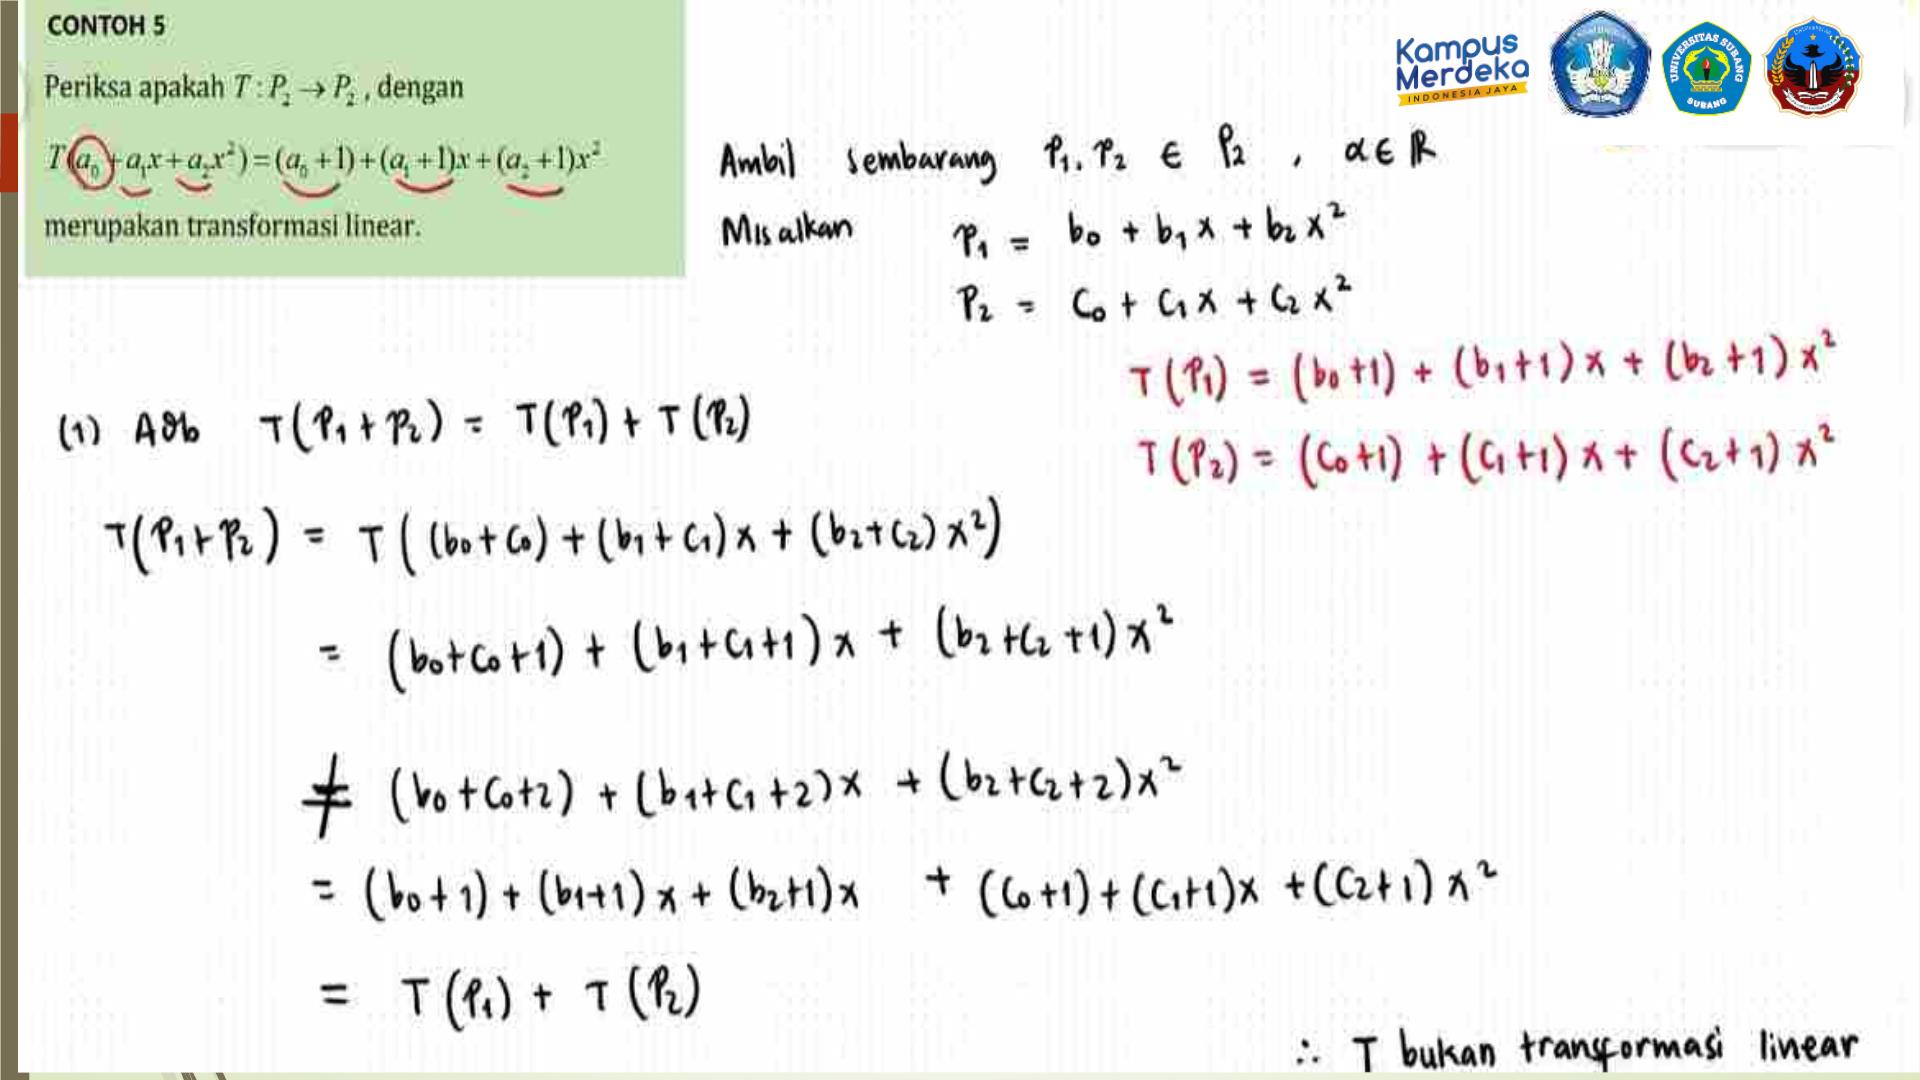 CONTOH 5
Periksa apakah T : P₂ → P₂ , dengan
T(a₀ + a₁x + a₂x²) = (a₀ + 1) + (a₁ + 1)x + (a₂ + 1)x²
merupakan transformasi linear.
Kampus
Merdeka
INDONESIA JAYA
UNIVERSITAS SUBANG
SUBANG
Ambil sembarang P₁, P₂ ∈ P₂ , α ∈ ℝ
Misalkan P₁ = b₀ + b₁x + b₂x²
P₂ = c₀ + c₁x + c₂x²
T(P₁) = (b₀+1) + (b₁+1)x + (b₂+1)x²
T(P₂) = (c₀+1) + (c₁+1)x + (c₂+1)x²
(1) Adb T(P₁ + P₂) = T(P₁) + T(P₂)
T(P₁+P₂) = T((b₀+c₀) + (b₁+c₁)x + (b₂+c₂)x²)
= (b₀+c₀+1) + (b₁+c₁+1)x + (b₂+c₂+1)x²
≠ (b₀+c₀+2) + (b₁+c₁+2)x + (b₂+c₂+2)x²
= (b₀+1) + (b₁+1)x + (b₂+1)x + (c₀+1) + (c₁+1)x + (c₂+1)x²
= T(P₁) + T(P₂)
∴ T bukan transformasi linear